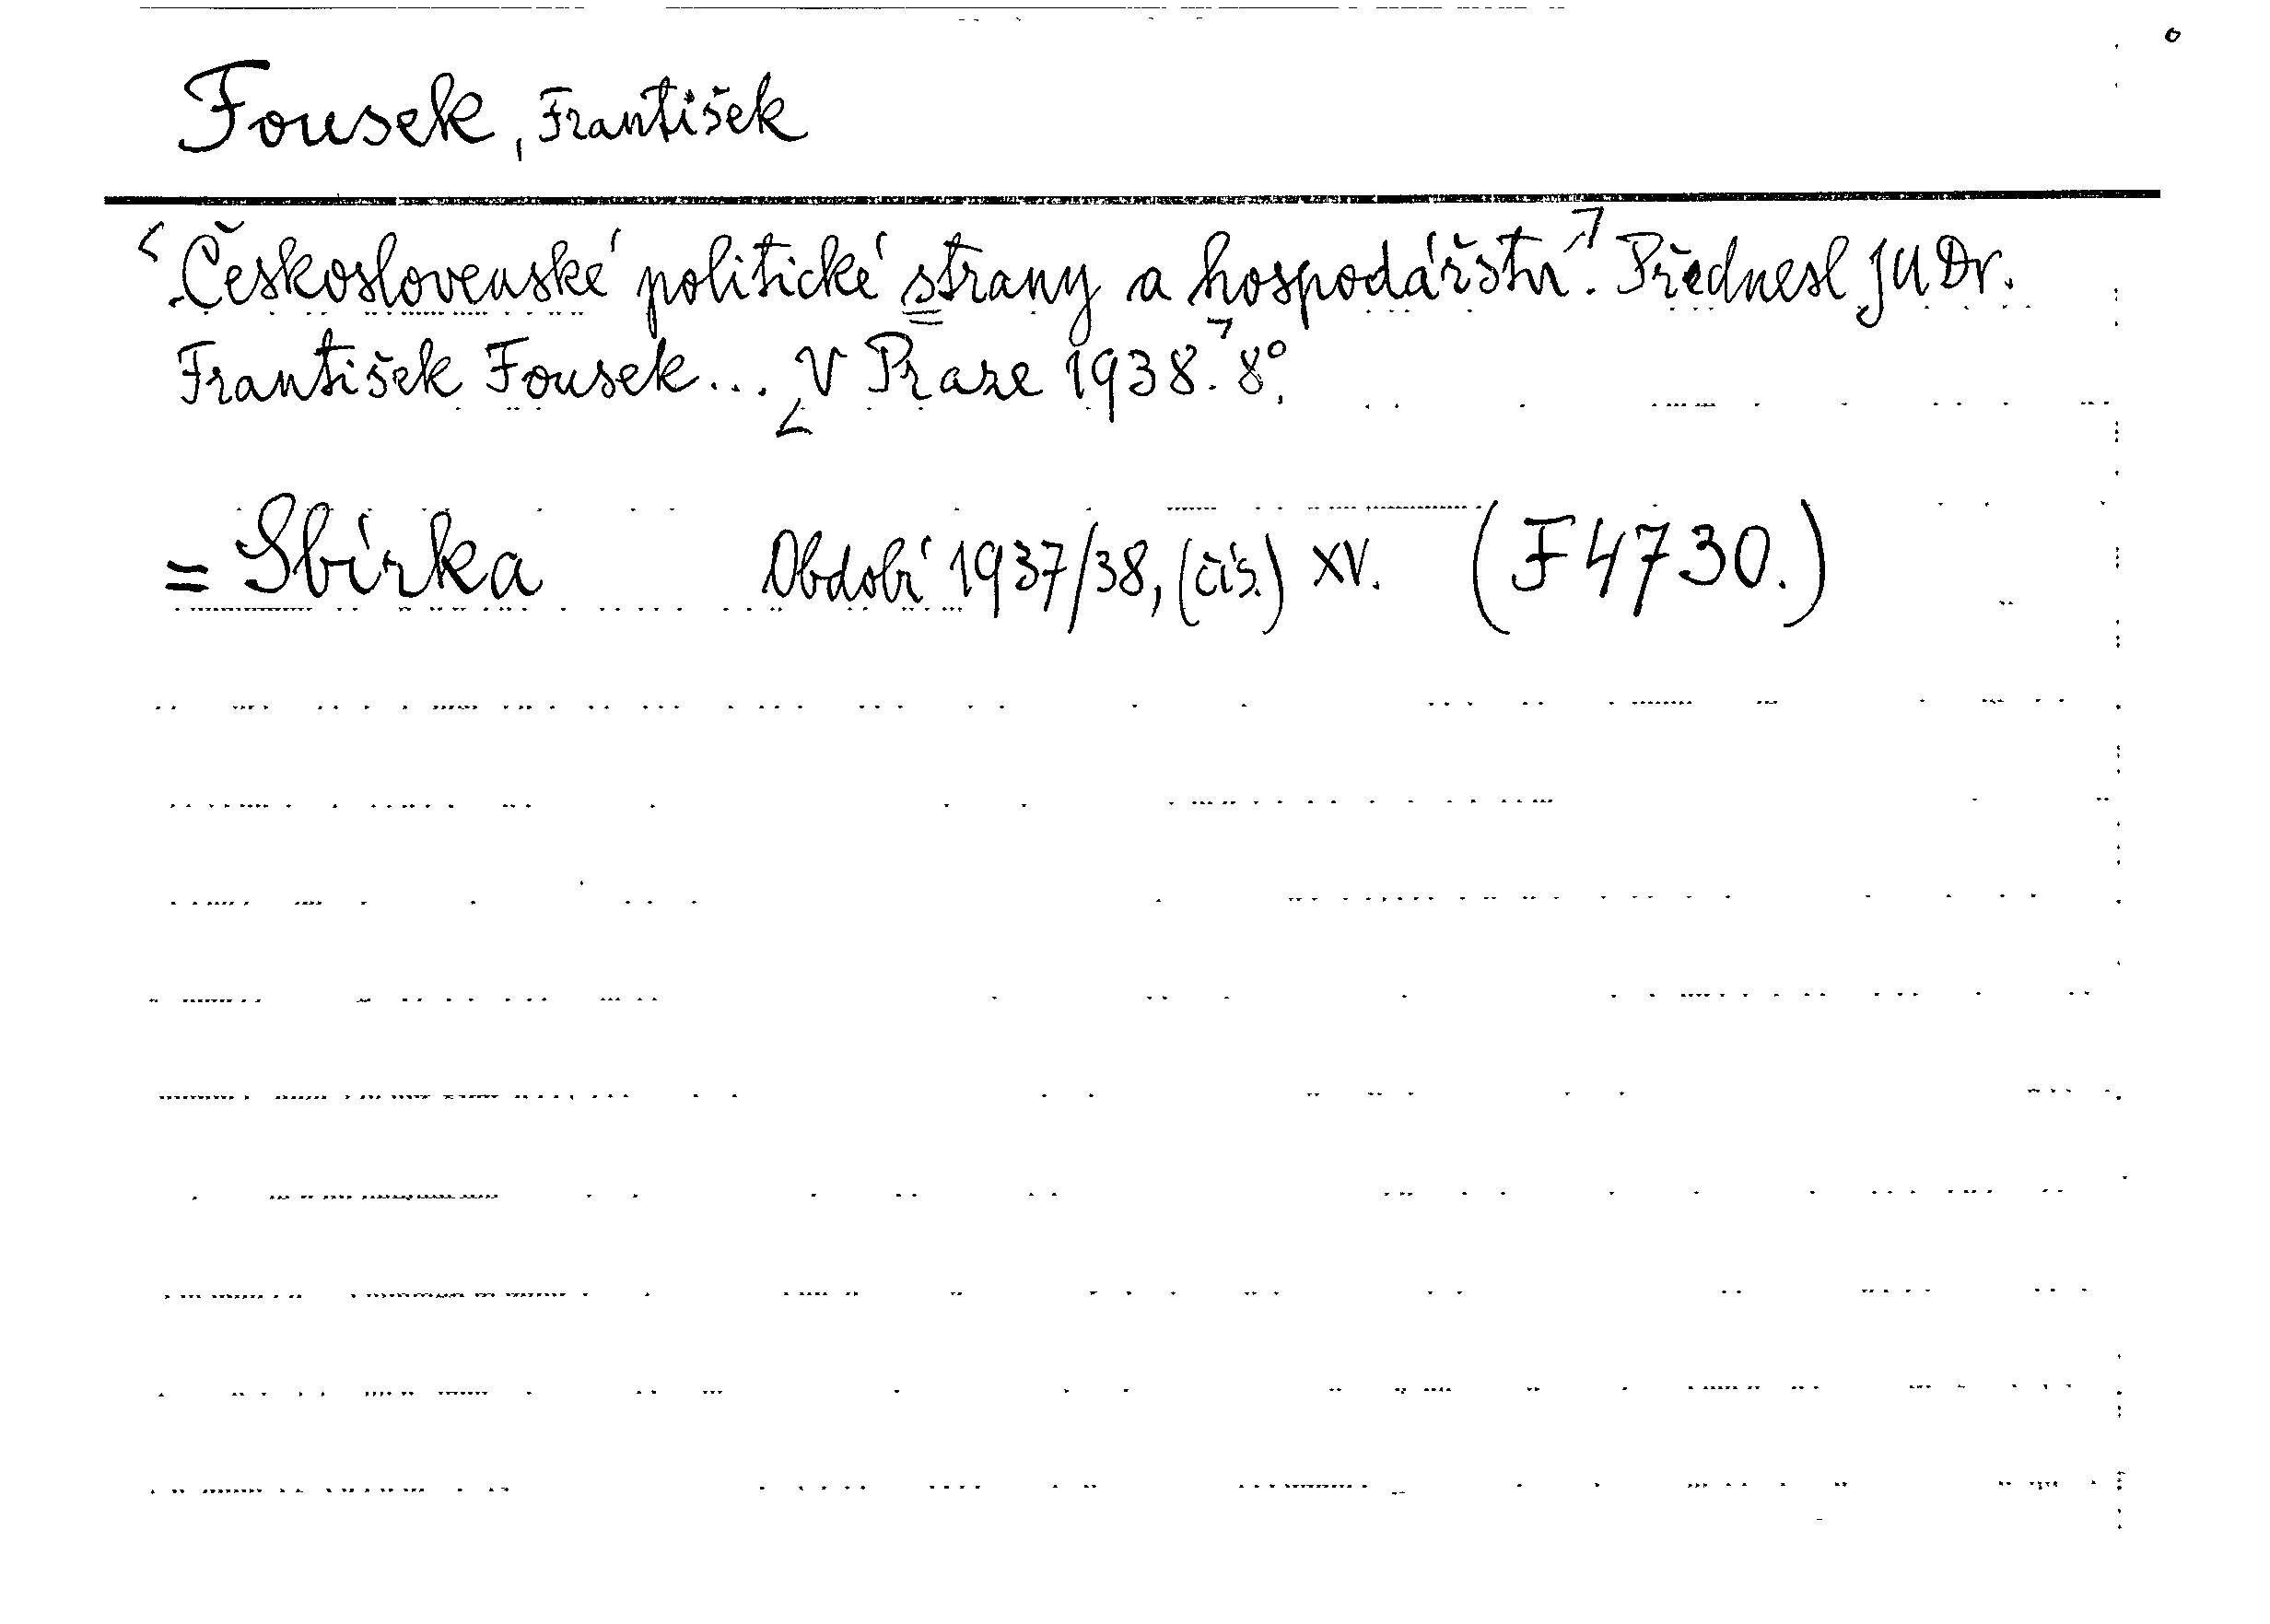 Fousek, František
Československé politické strany a hospodářství. Přednesl JUDr.
František Fousek... V Praze 1938. 8°.
= Sbírka Období 1937/38, (čís.) XV. (F 4730.)